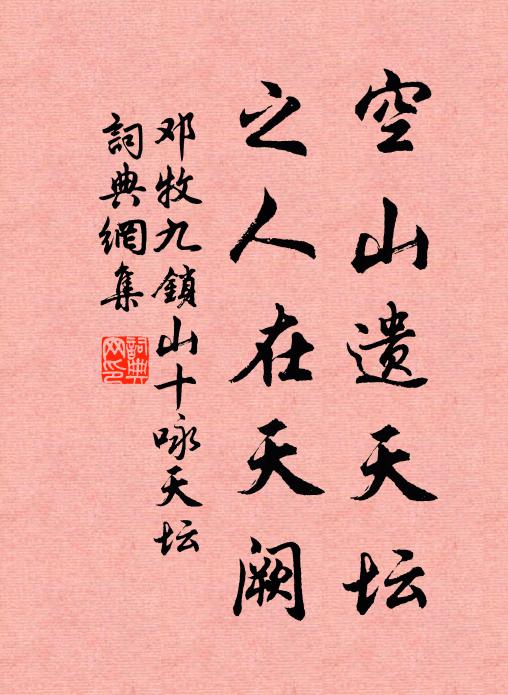 空山遗天坛
之人在天阙
邓牧九鎖山十咏天坛
詞典網集
詞典網印